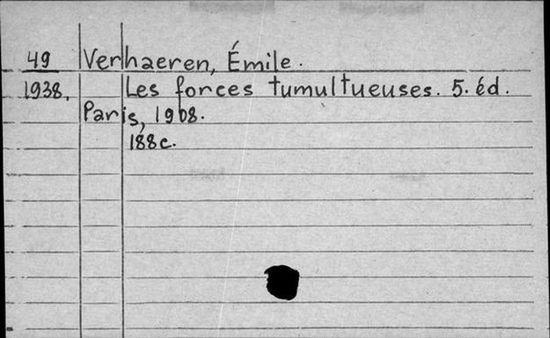 49 Verhaeren, Émile.
1938. Les forces tumultueuses. 5. éd.
Paris, 1908.
188c.